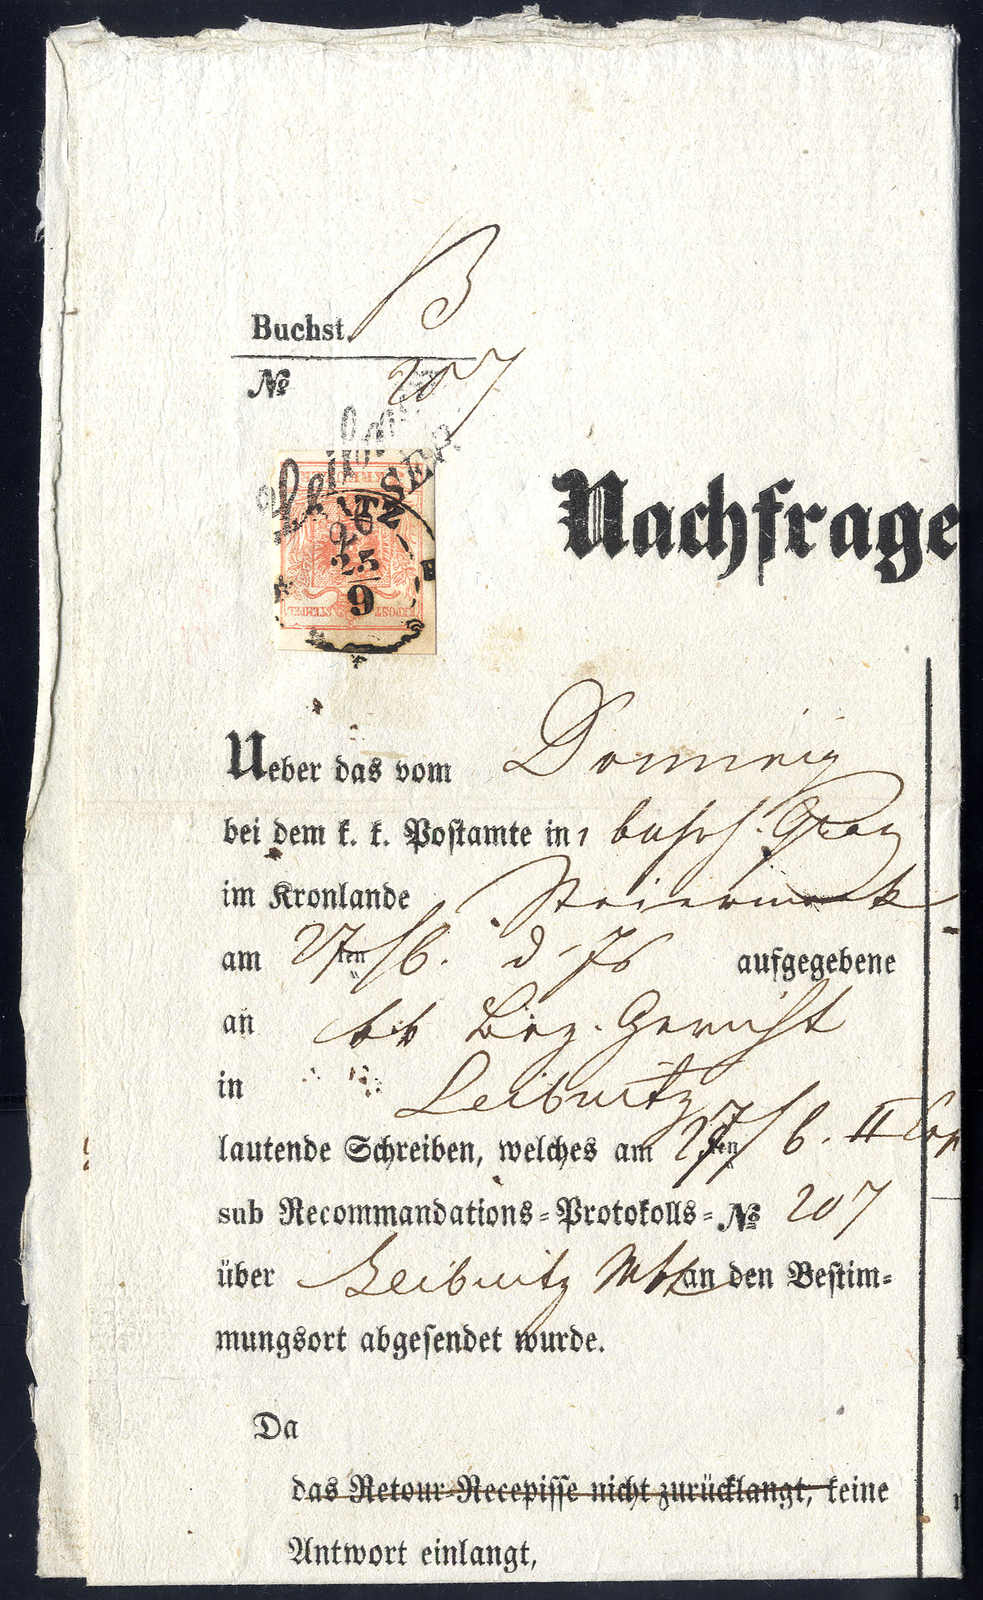 Buchst. B
№ 207
SEP.
25
9
KKPOST STEMPEL
Nachfrage
Ueber das vom
bei dem k. k. Postamte in Graz
im Kronlande Steiermark
am 27ten/6. d Js aufgegebene
an kk Bez. Gericht
in Leibnitz
lautende Schreiben, welches am 27ten/6. II
sub Recommandations-Protokolls-№ 207
über Leibnitz an den Bestim-
mungsort abgesendet wurde.
Da
das Retour-Recepisse nicht zurücklangt, keine
Antwort einlangt,